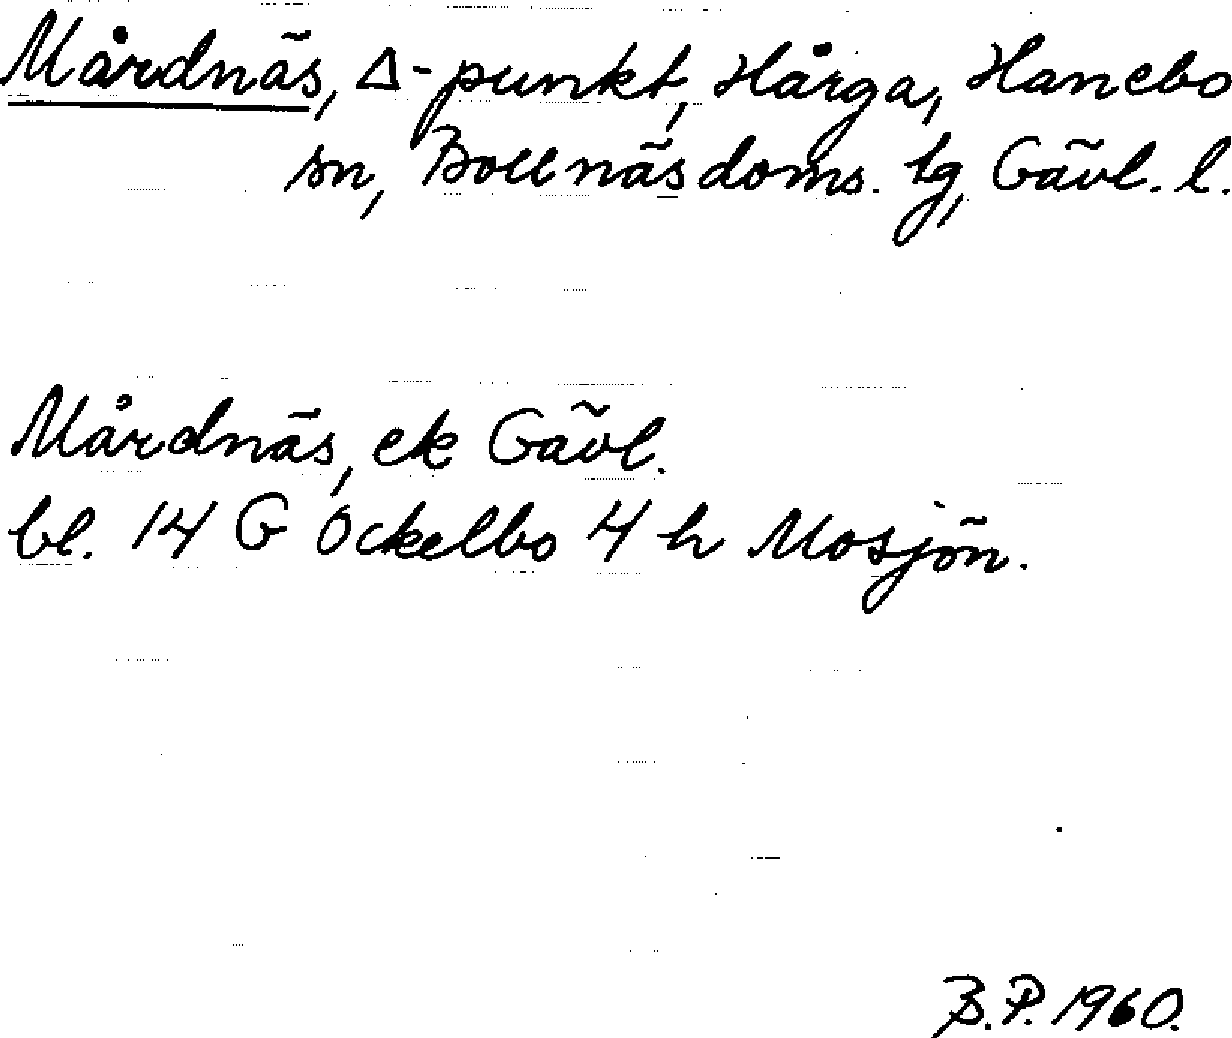 Mårdnäs, Δ-punkt, Hårga, Hanebo
sn, Bollnäs doms. tg, Gävl. l.
Mårdnäs, ek Gävl.
bl. 14 G Ockelbo 4 h Mosjön.
B.P. 1960.